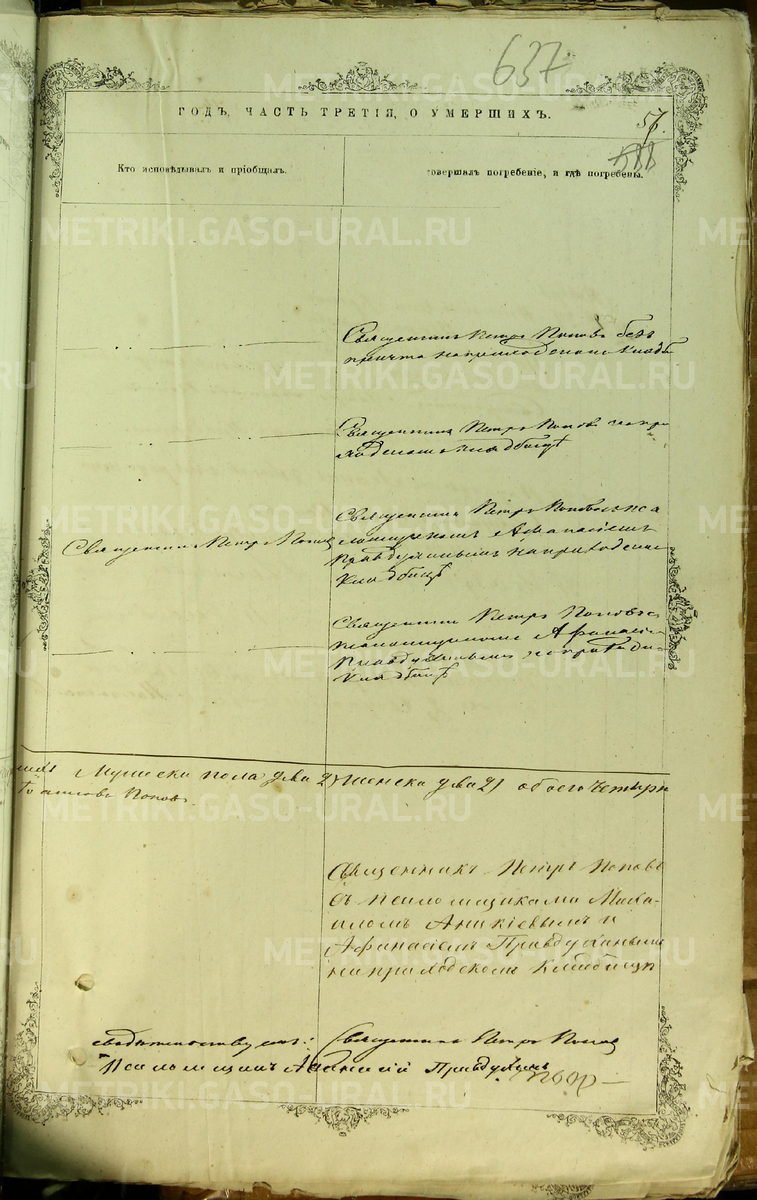 637
ГОДЪ, ЧАСТЬ ТРЕТІЯ, О УМЕРШИХЪ.
57.
588
Кто исповѣдывалъ и пріобщалъ.
совершалъ погребеніе, и гдѣ погребены.
METRIKI.GASO-URAL.RU
Священникъ Петръ Поповъ безъ
причта на приходскомъ кладб
Священникъ Петръ Поповъ на при
ходскомъ кладбищѣ
Священникъ Петръ Поповъ
Священникъ Петръ Поповъ съ пса
ломщикомъ Афанасіемъ
Правдухинымъ на приходском
кладбищѣ
Священникъ Петръ Поповъ с
псаломщикомъ Афанасіе
Правдухинымъ на приходс
кладбищѣ
Мужеска пола два 2, женска два 2, обоего четыре
Поповъ.
Священникъ Петръ Поповъ
съ псаломщиками Миха-
иломъ Аникіевымъ и
Афанасіемъ Правдухиным
на приходскомъ кладбищѣ
свидѣтельствуемъ: Священникъ Петръ Попов
Псаломщикъ Афанасій Правдухинъ